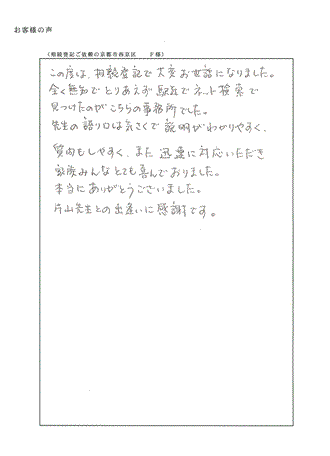 お客様の声
（相続登記ご依頼の京都市西京区　F様）
この度は、相続登記で大変お世話になりました。
全く無知でとりあえず駅近でネット検索で
見つけたのがこちらの事務所でした。
先生の語り口は気さくで説明がわかりやすく、
質問もしやすく、また迅速に対応いただき
家族みんなとても喜んでおりました。
本当にありがとうございました。
片山先生との出逢いに感謝です。